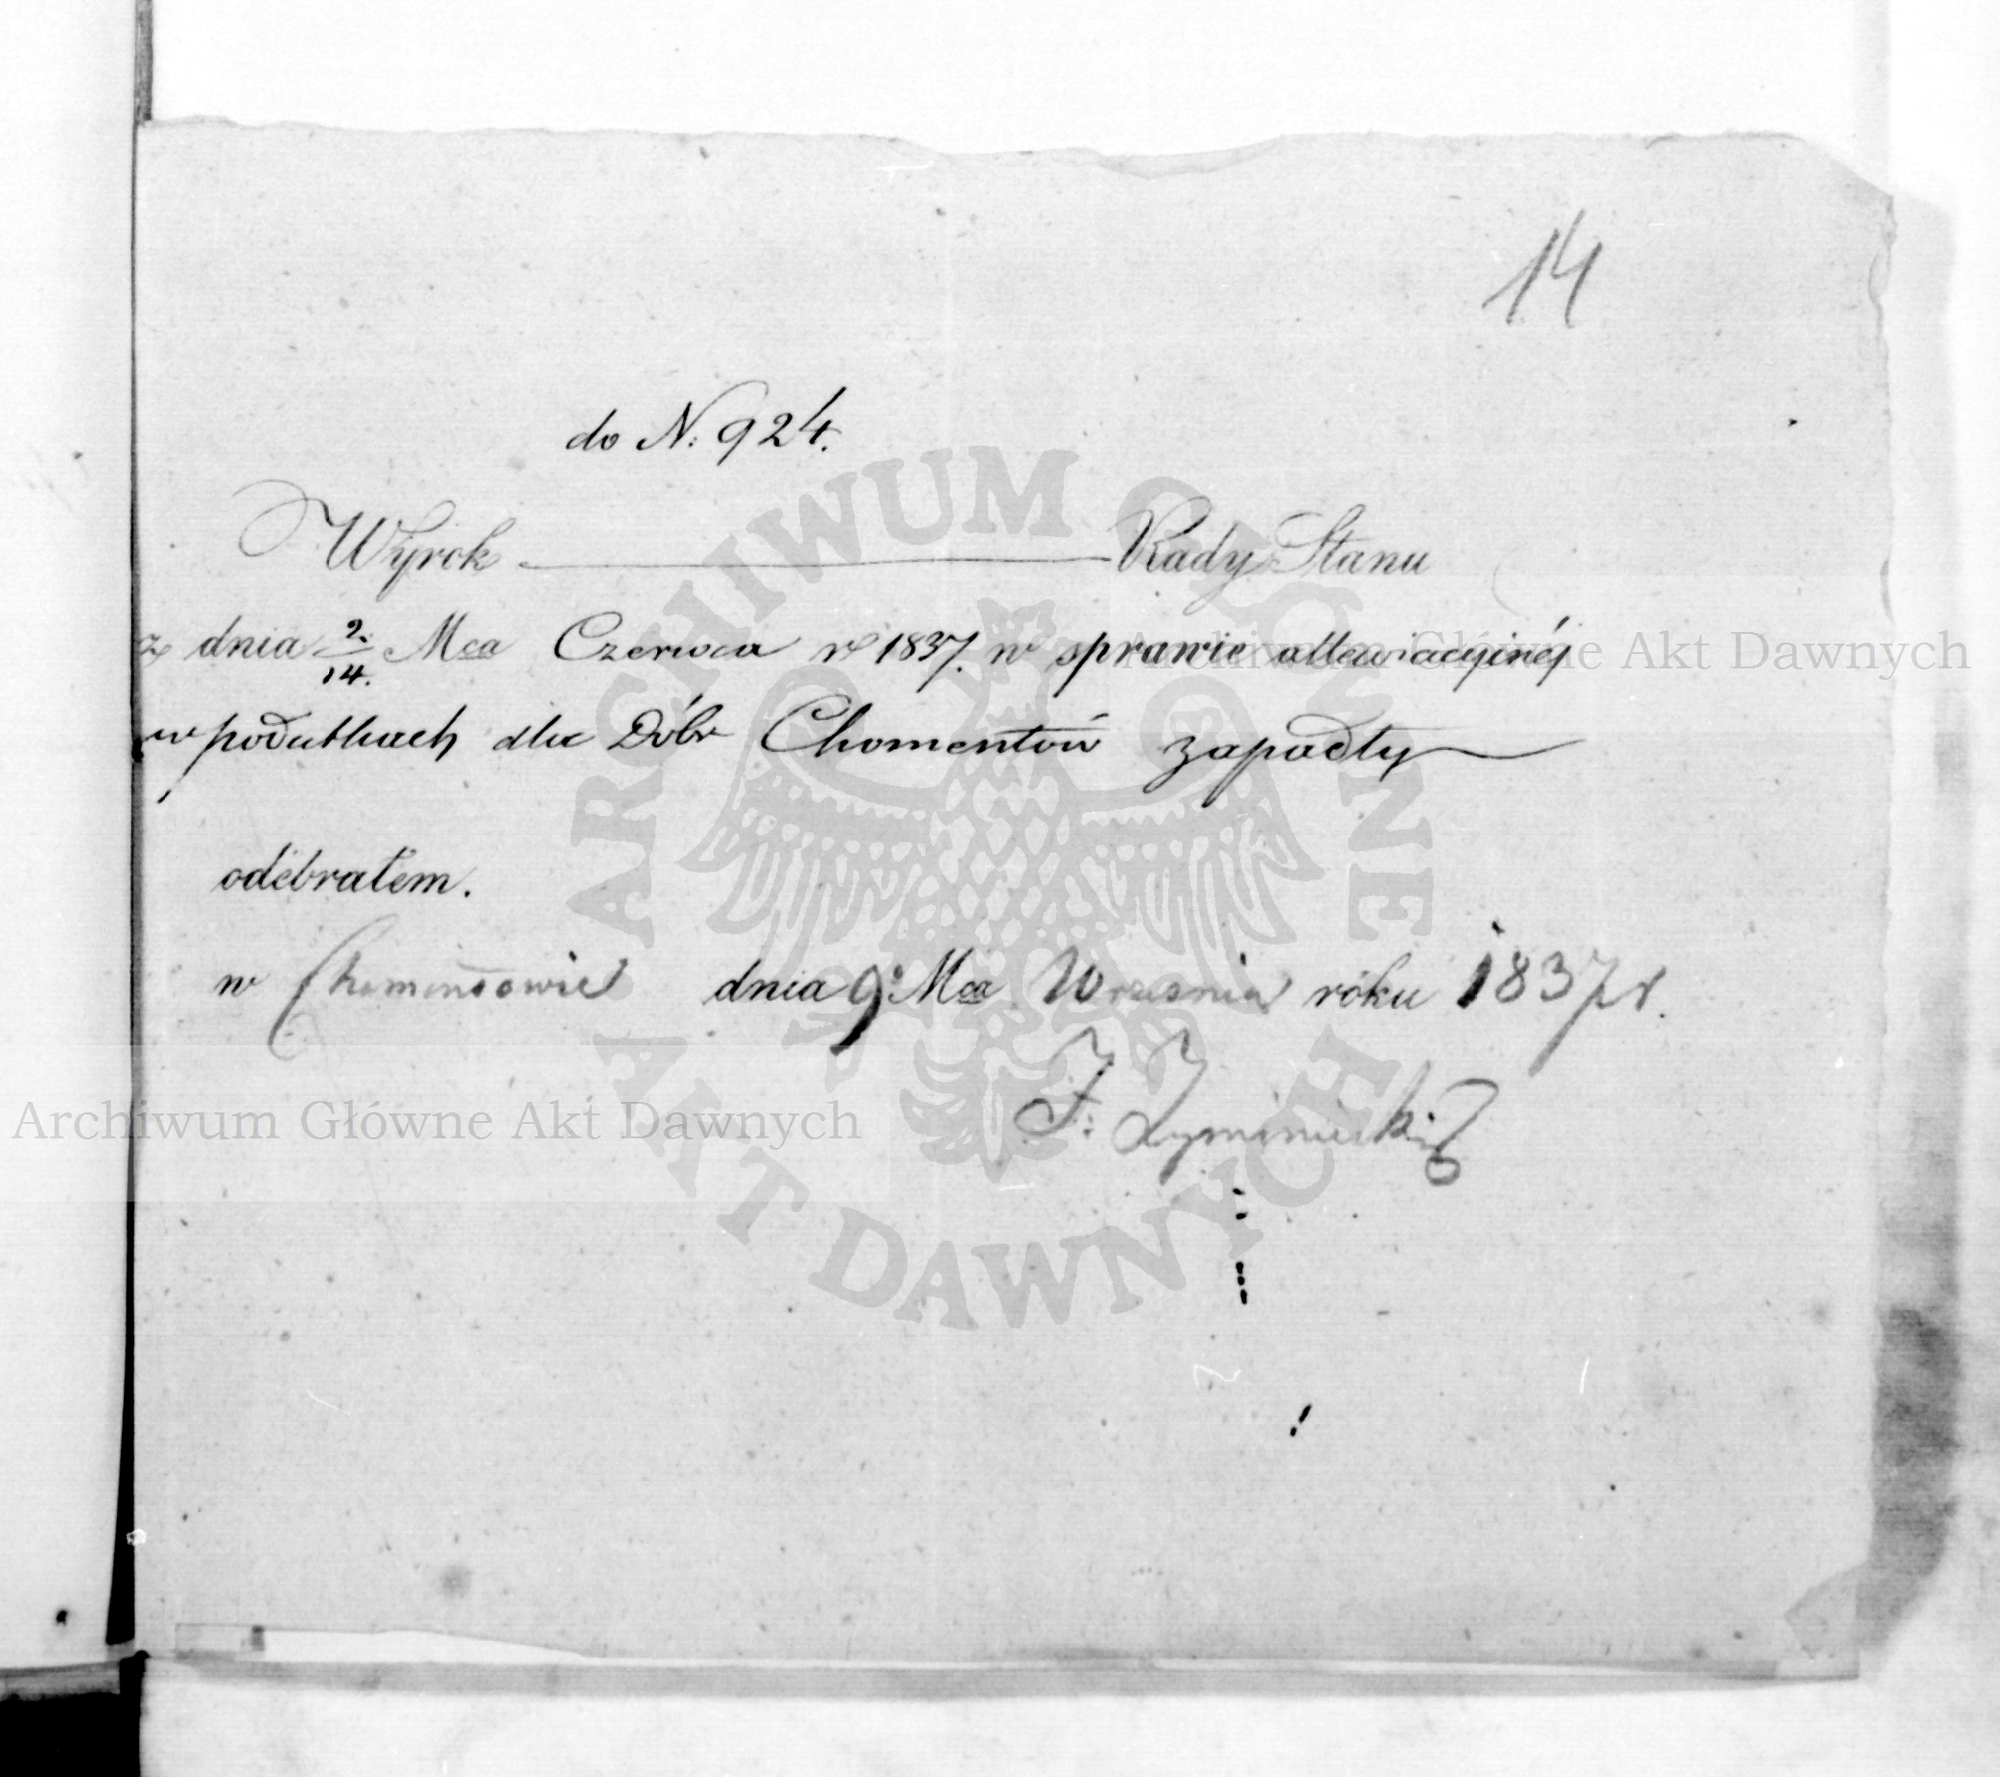 14
do N: 924.
Wyrok — Rady Stanu
z dnia 2/14. Mca Czerwca r° 1837. w sprawie allewiacyjnéj
w podatkach dla Dóbr Chomentów zapadły
odebrałem.
w Chomentowie dnia 9° Mca Wrzesnia roku 1837 r.
J:
Archiwum Główne Akt Dawnych
Archiwum Główne Akt Dawnych
ARCHIWUM GŁÓWNE AKT DAWNYCH